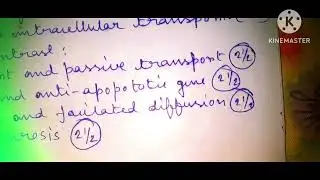 intracellular transport
ontrast:
nt and passive transport 2 1/2
nd anti-apopototic gene 2 1/2
and faciliated diffusion 2 1/2
resis 2 1/2
KINEMASTER